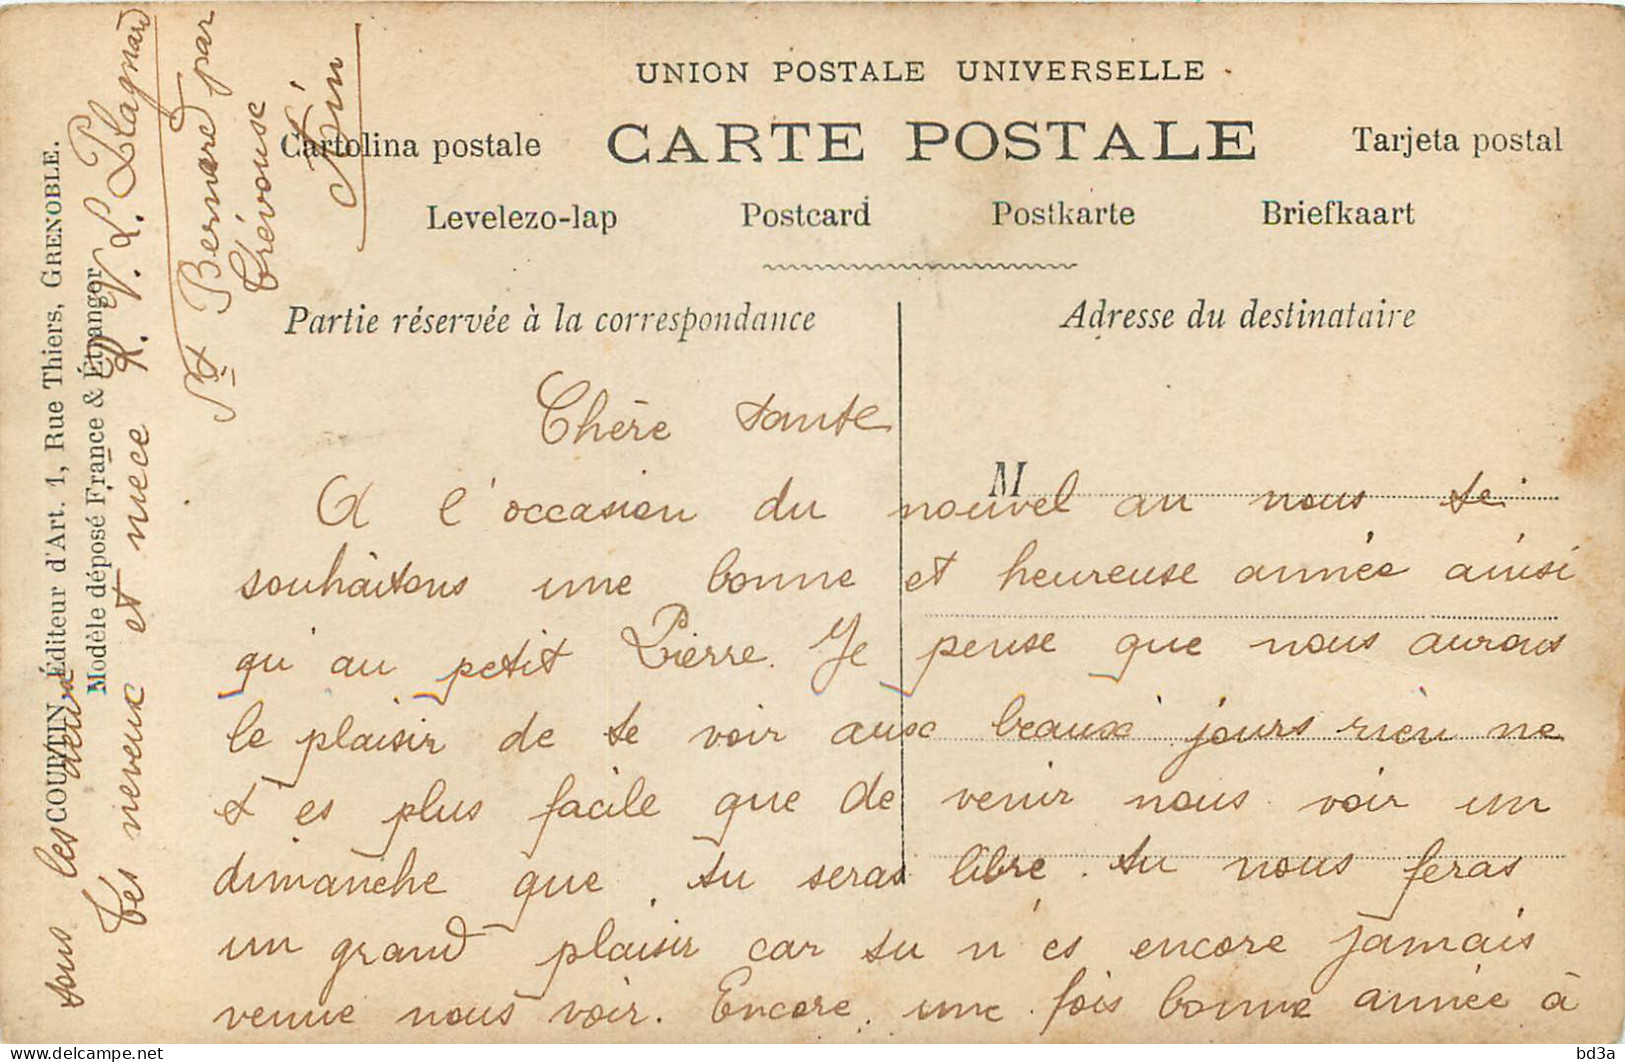 UNION POSTALE UNIVERSELLE
CARTE POSTALE
Cartolina postale
Tarjeta postal
Levelezo-lap
Postcard
Postkarte
Briefkaart
Partie réservée à la correspondance
Adresse du destinataire
M
Chère tante
A l'occasion du nouvel an nous te
souhaitons une bonne et heureuse année ainsi
qu'au petit Pierre. Je pense que nous aurons
le plaisir de te voir aux beaux jours rien ne
t'es plus facile que de venir nous voir un
dimanche que tu seras libre. tu nous feras
un grand plaisir car tu n'es encore jamais
venue nous voir. Encore une fois bonne année à
tous les deux
Tes neveux et niece P. V. L. Plagnard
St Bernard par
Trévouse
Ain
COURTIN, Éditeur d'Art. 1, Rue Thiers, GRENOBLE.
Modèle déposé France & Étranger
bd3a